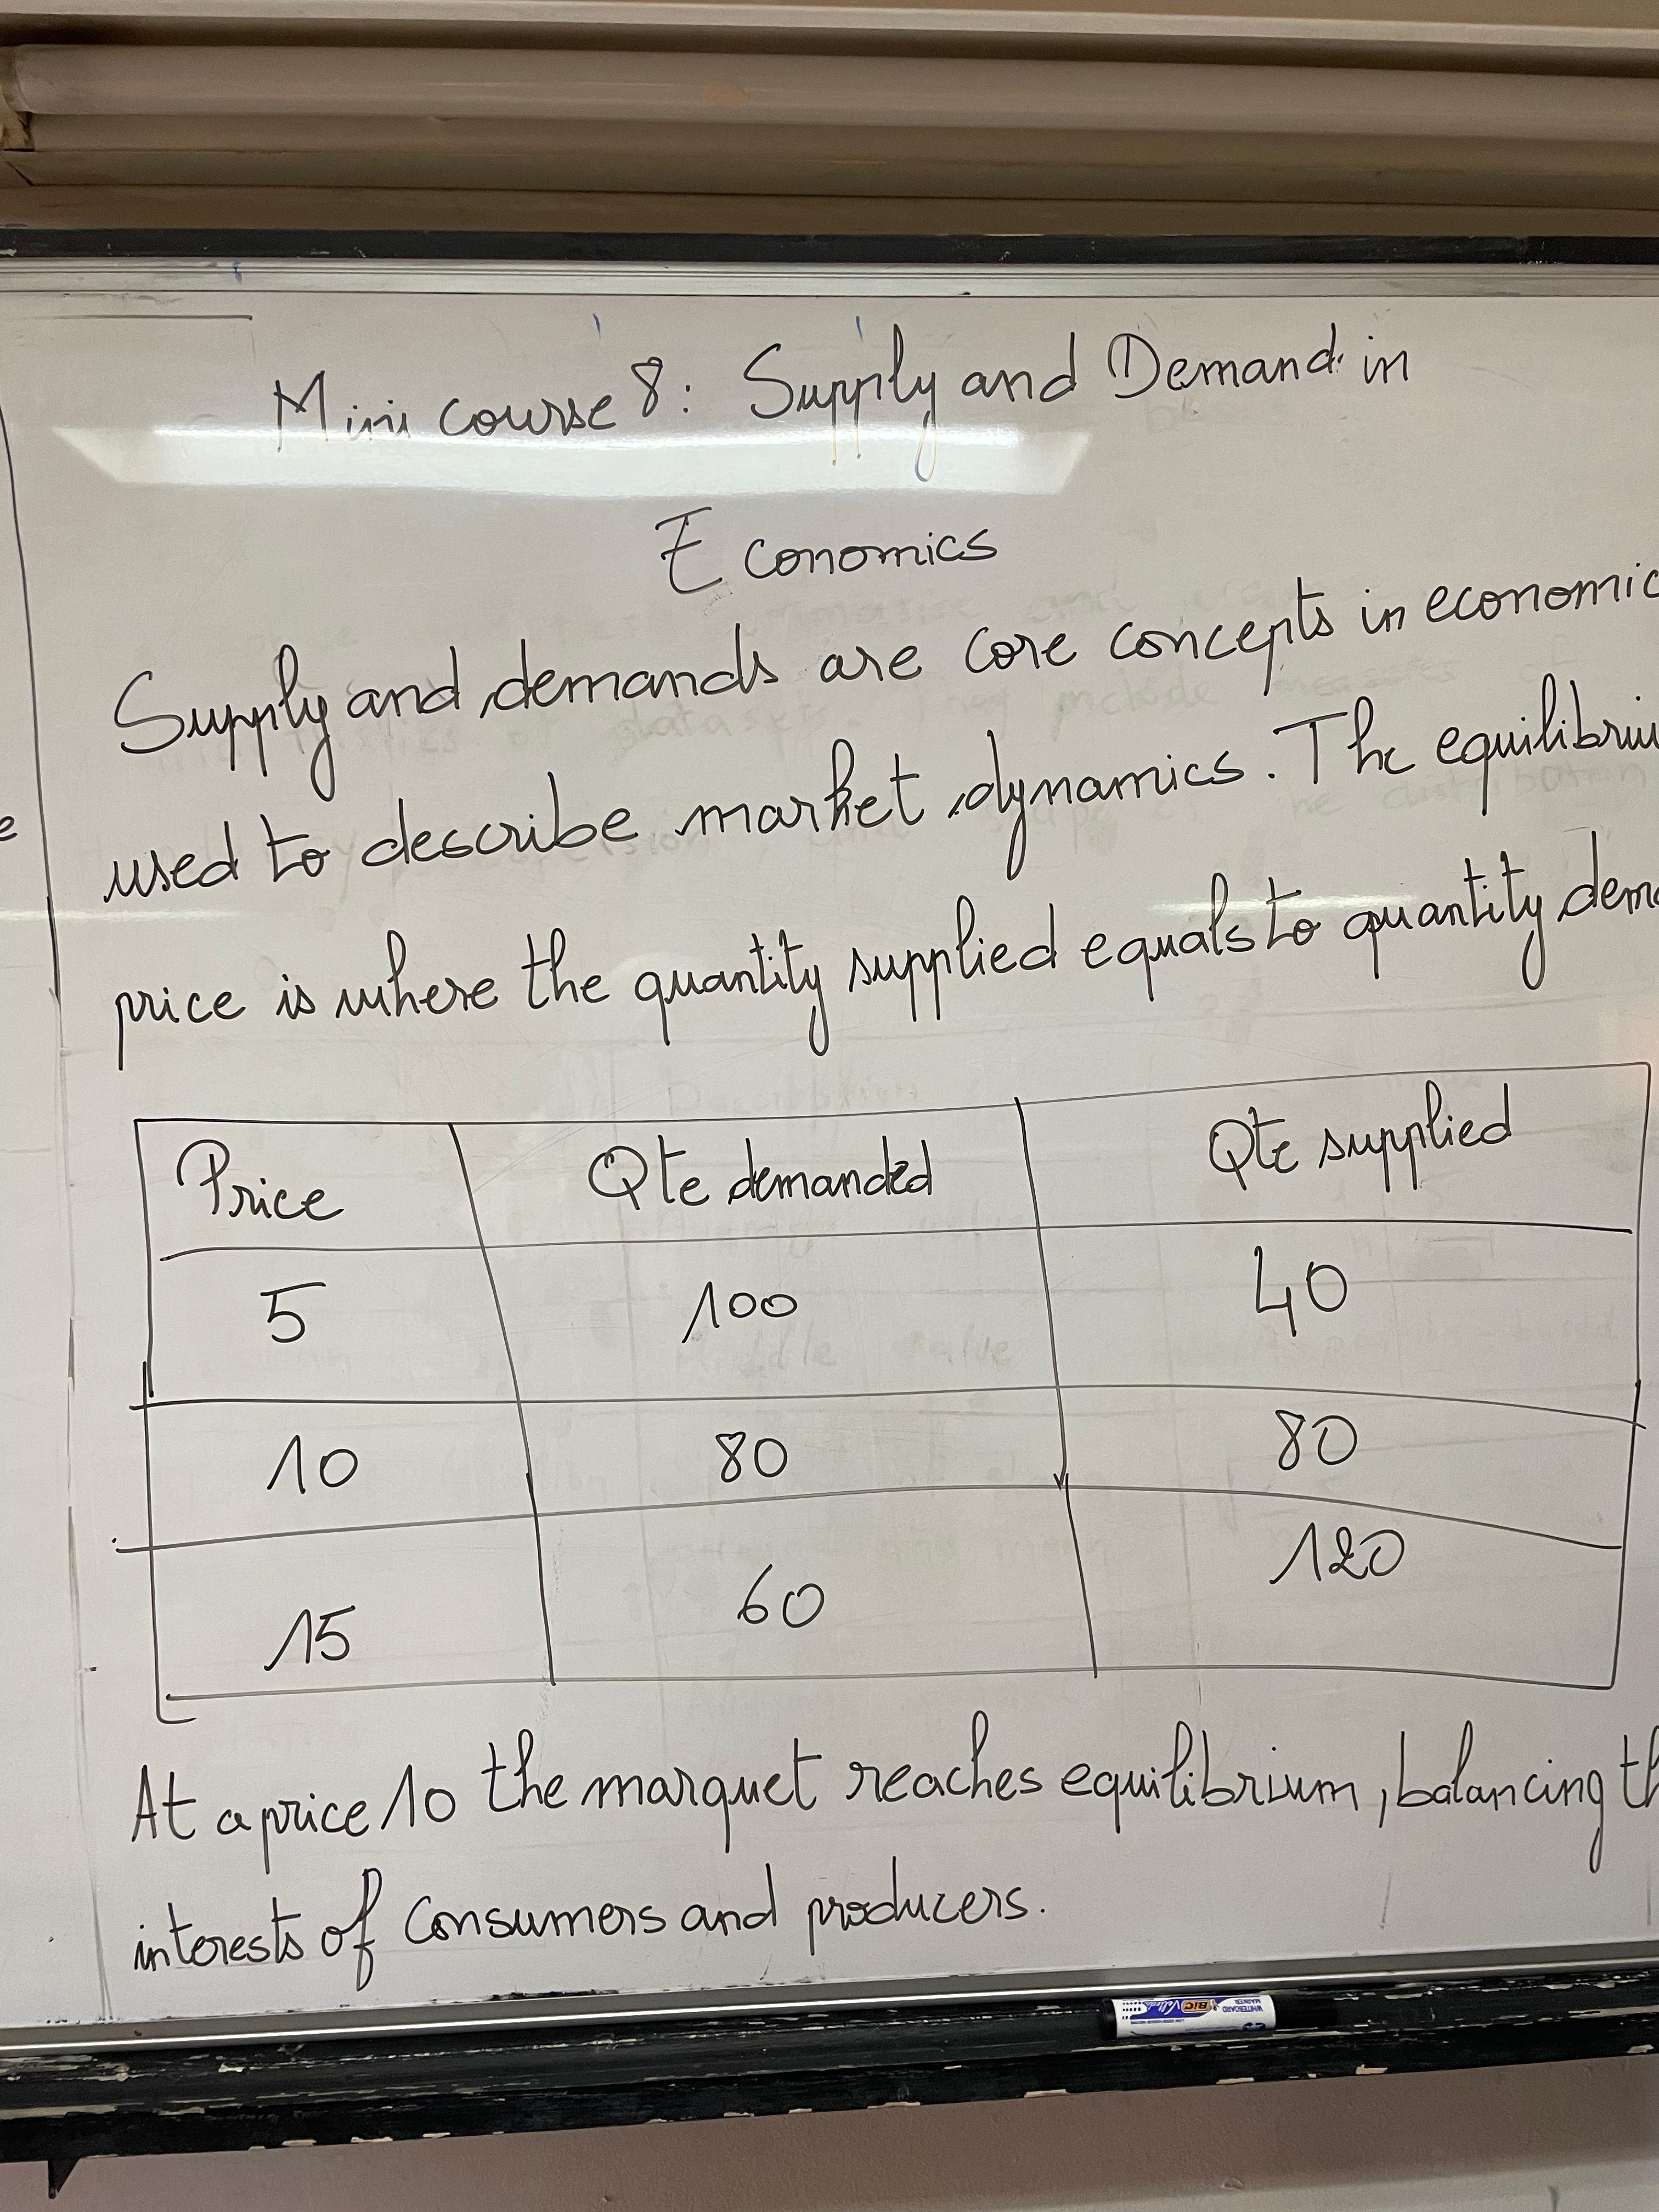 Mini course 8: Supply and Demand in
Economics
Supply and demands are core concepts in economic
used to describe market dynamics. The equilibriu
price is where the quantity supplied equals to quantity dem
Price Qte demanded Qte supplied
5 100 40
10 80 80
15 60 120
At a price 10 the marquet reaches equilibrium, balancing th
interests of consumers and producers.
WHITEBOARD MARKER BIC Velleda